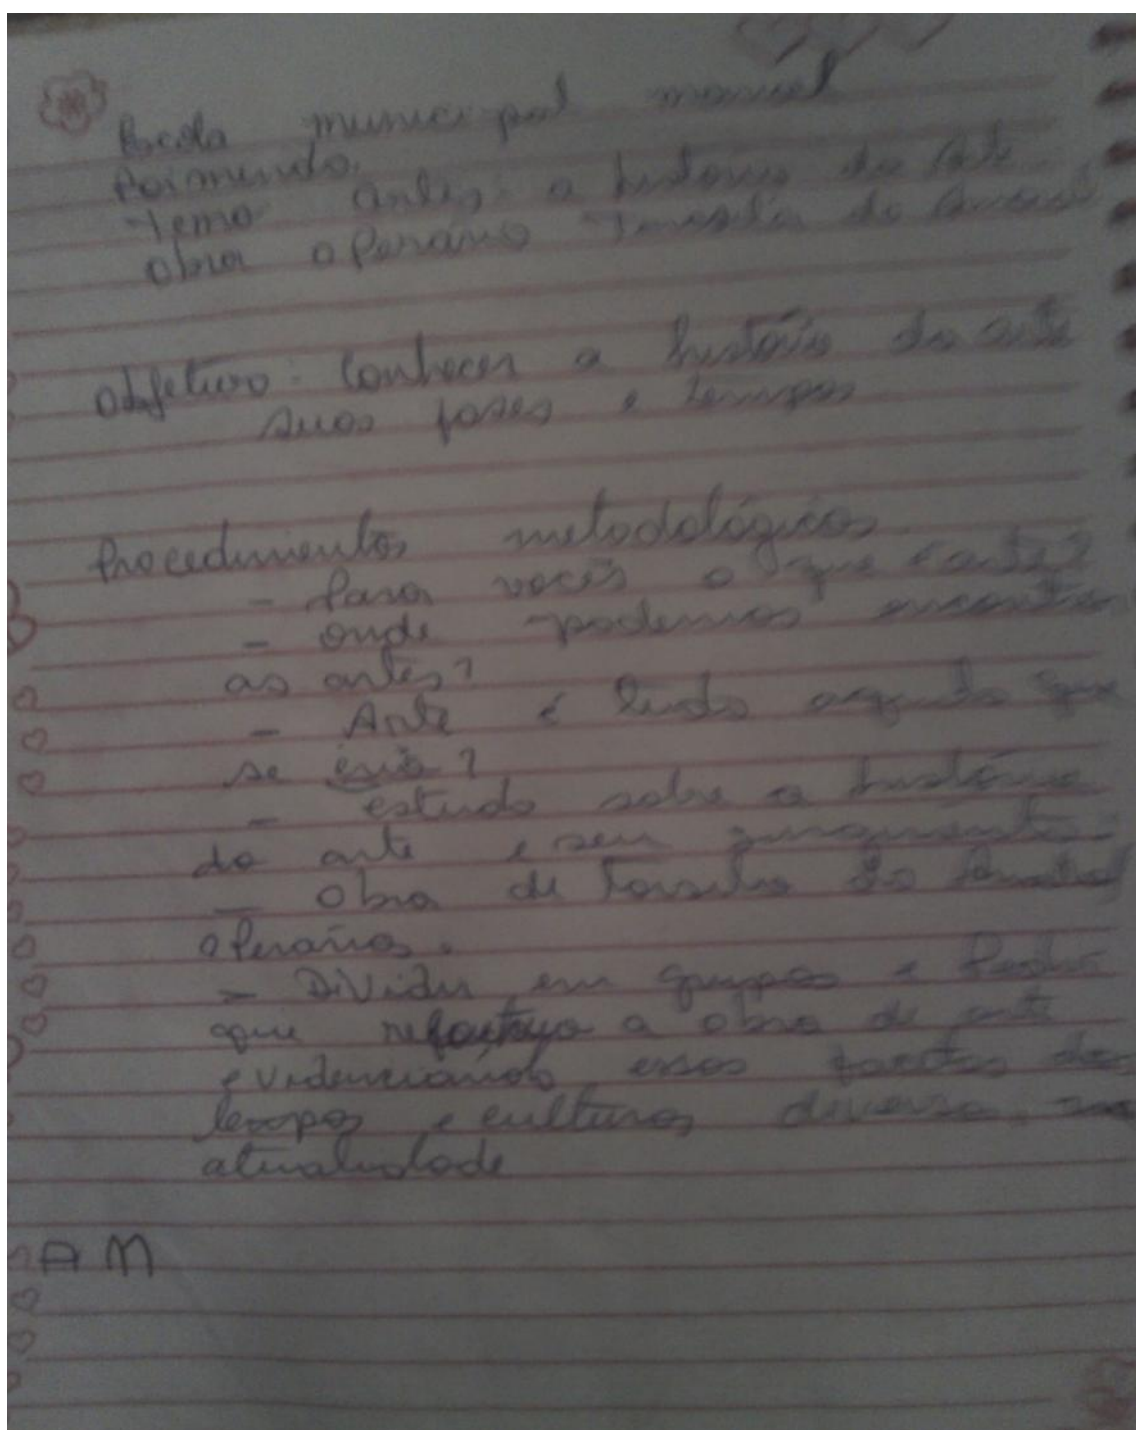 Escola municipal manoel
Raimundo.
Tema: artes: a história da arte
obra operário Tarsila do Amaral
objetivo: Conhecer a história da arte
suas fases e tempos
Procedimentos metodológicos
- Para vocês o que é arte?
- onde podemos encontrar
as artes?
- Arte é tudo aquilo que
se cria?
- estudo sobre a história
da arte e seu surgimento.
- obra de Tarsila do Amaral
operários.
- Dividir em grupos e Pedir
que refaça a obra de arte
evidenciando essos
tempos e culturas diversa na
atualidade
A M